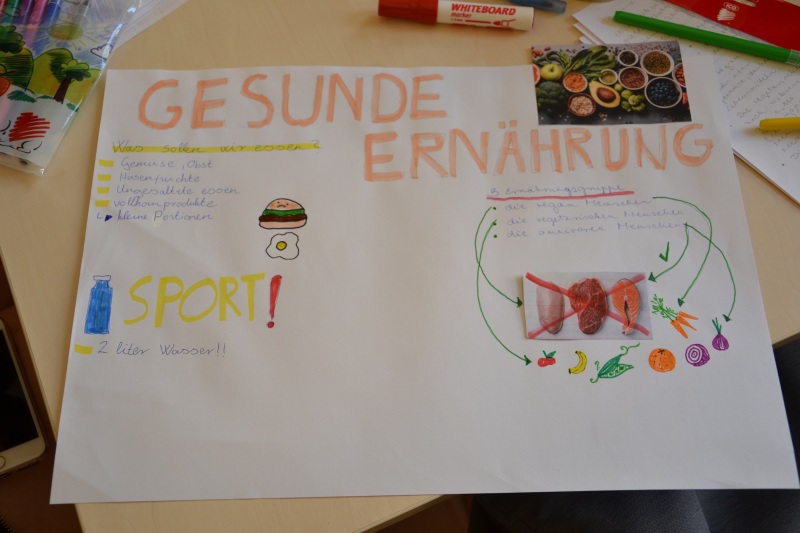 WHITEBOARD
marker
GESUNDE
ERNÄHRUNG
Was sollen wir essen?
Gemüse, Obst
Hüsenfrüchte
Ungesalzte essen
vollkornprodukte
kleine Portionen
SPORT!
2 liter Wasser!!
3 ernährungsgruppe
die vegan Menschen
die vegetarischen Menschen
die omnivoren Menschen